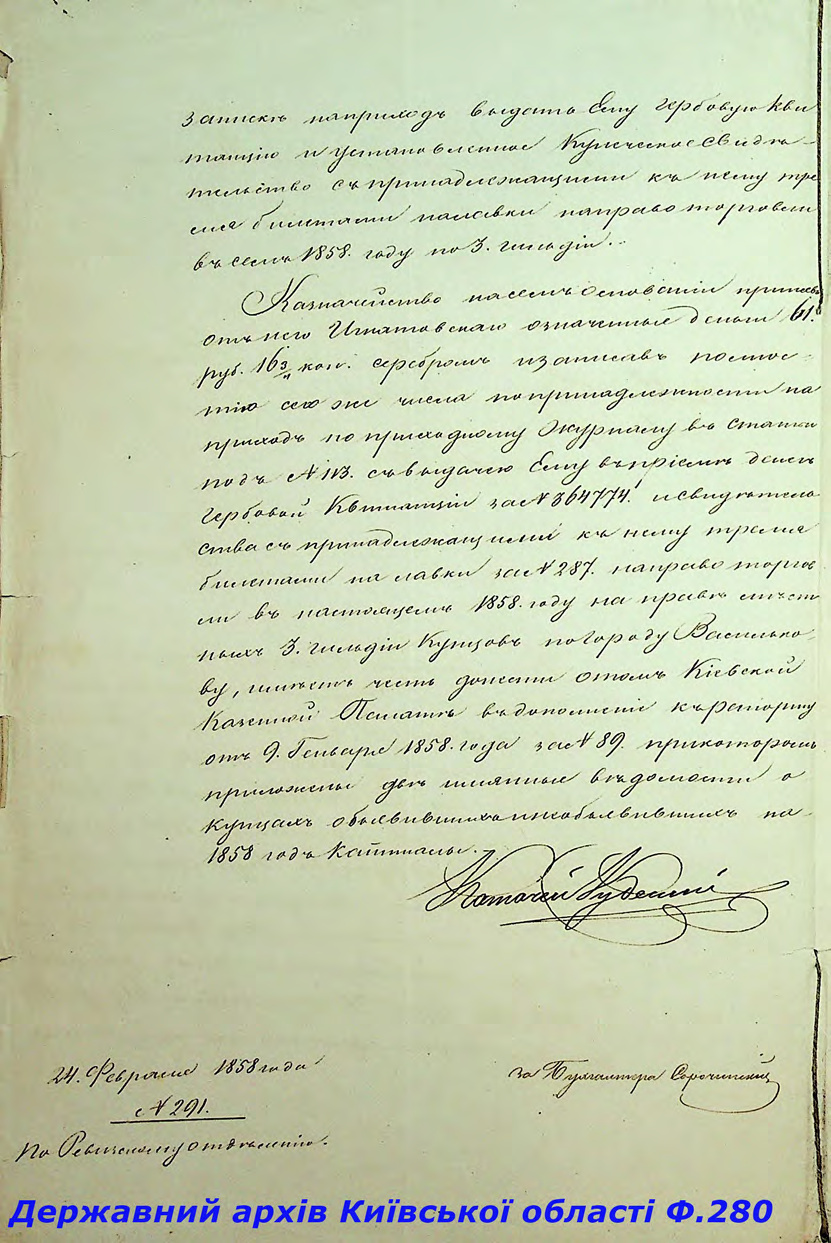 записки на приходъ выдать Ему гербовую Кви
танцію и установленное Купеческое Свидѣ-
тельство съ принадлежащими къ нему тре
мя билетами на лавки на право торговли
въ семъ 1858. году по 3. гильдіи.
Казначейство на семъ Основаніи принявъ
отъ него Игнатовскаго означенные деньги 61.
руб. 16 3/4 коп. серебромъ и записавъ полнос-
тію сего же числа по принадлежности на
приходъ по приходному Журналу въ Статьи
подъ № 113. съ выдачею Ему въ пріемѣ денегъ
Гербовой Квитанціи за № 364774. и свидѣтель
ства съ принадлежащими къ нему тремя
билетами на лавки за № 287. на право торгов
ли въ настоящемъ 1858. году на правѣ мѣст
ныхъ 3. гильдіи Купцовъ по Городу Василько-
ву, имѣетъ честь донести о томъ Кіевской
Казенной Палатѣ въ дополненіи къ рапорту
отъ 9. Генваря 1858. года за № 89. при которомъ
приложены двѣ имянные вѣдомости о
Купцахъ объявившихъ и необъявившихъ на
1858 годъ Капиталы.
Казначей
24. Февраля 1858 года
за Бухгалтера Сорочинскій
№ 291.
По Ревизскому отдѣленію.
Державний архів Київської області Ф.280